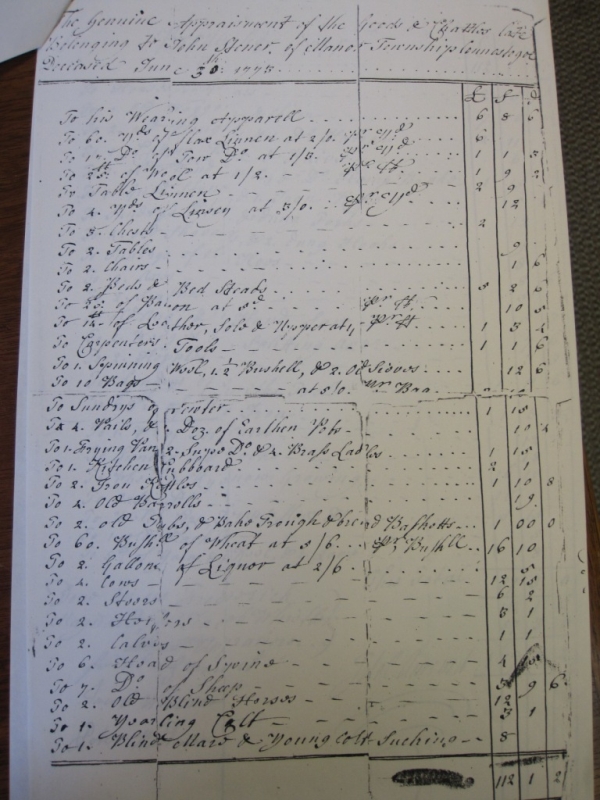 The Genuine Appraisment of the Goods & Chattles late
Belonging to John Stoner, of Manor Township
Deceased June 30th 1778
£ s d
To his Wearing Apparell 6 8 6
To 60. Yds of Flax Linnen at 2/0. pr Yd 6
To 17. Do of Tow Do at 1/3. pr Yd 1 1 3
To of Wool at 1/2. pr lb 1 9 2
To Table Linnen 2 9
To 4. Yds of Linsey at 3/0. pr Yd 12
To 3. Chests 2
To 2. Tables 9
To 2. Chairs 1 6
To 2. Beds & Bed Steads 5 2 6
To of Bacon at 5d pr lb 10 5
To of Leather, Sole & Upper at pr lb 1 5
To Carpenters Tools 1 1 6
To 1. Spinning Weel, 1. 1/2 Bushell, & 2. Old Sieves 12 6
To 10 Bags at
To Sundrys of Pewter 1 15
To 4. Pails, & Doz. of Earthen Pots 10 4
To 1. Frying Pan Do & 4. Brass Ladles 1 15
To 1. Kitchen Cubboard 2 1
To 2. Iron Kettles 1 10 8
To 4. Old Barrolls 19
To 2. old Tubs, & Bake Trough & bread Basketts 1 00 0
To 60. Bushll of Wheat at 5/6. pr Bushll 16 10
To 2. Gallons of Liquor at 2/6. 5
To 4. Cows 12 15
To 2. Steers 6 2
To 2. Heifers 3 1
To 2. Calves 1 1
To 6. Head of Swine 4
To 7. Do of Sheep 9 6
To 2. Old Blind Horses 12
To 1. Yearling Colt 3 1
To 1. Blind Mare & Young Colt Sucking 8
112 1 2